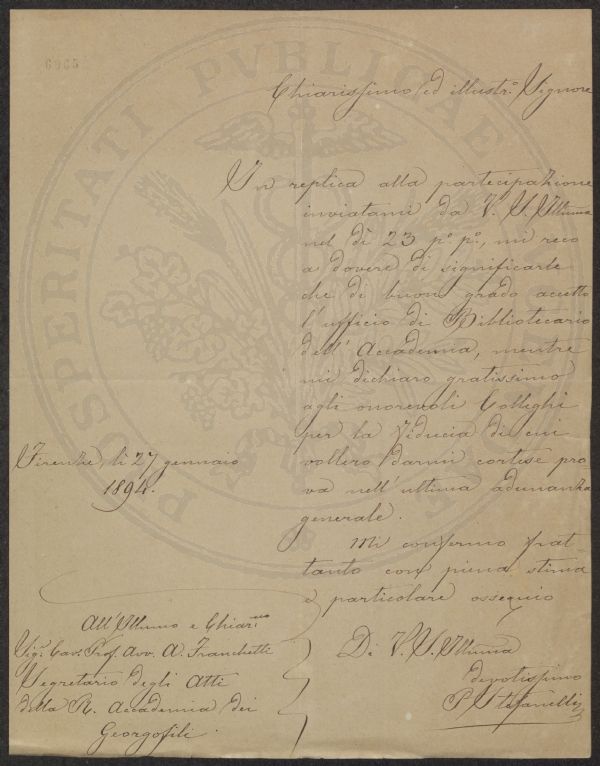 6965
Chiarissimo ed illustr.º Signore
In replica alla partecipazione
inviatami da V. S. Illma
nel dì 23 p.º p.º, mi reco
a dovere di significarle
che di buon grado accetto
l'ufficio di Bibliotecario
dell'Accademia, mentre
mi dichiaro gratissimo
agli onorevoli Colleghi
per la fiducia di cui
vollero darmi cortese pro-
va nell'ultima adunanza
generale.
Mi confermo frat-
tanto con piena stima
e particolare ossequio
Di V. S. Illma
devotissimo
P. Stefanelli
Firenze, lì 27 gennaio
1894.
All'Illmo e Chiar.mo
Sig.r Cav. Prof. Avv. A. Franchetti
Segretario degli Atti
della R. Accademia dei
Georgofili.
PROSPERITATI PVBLICAE